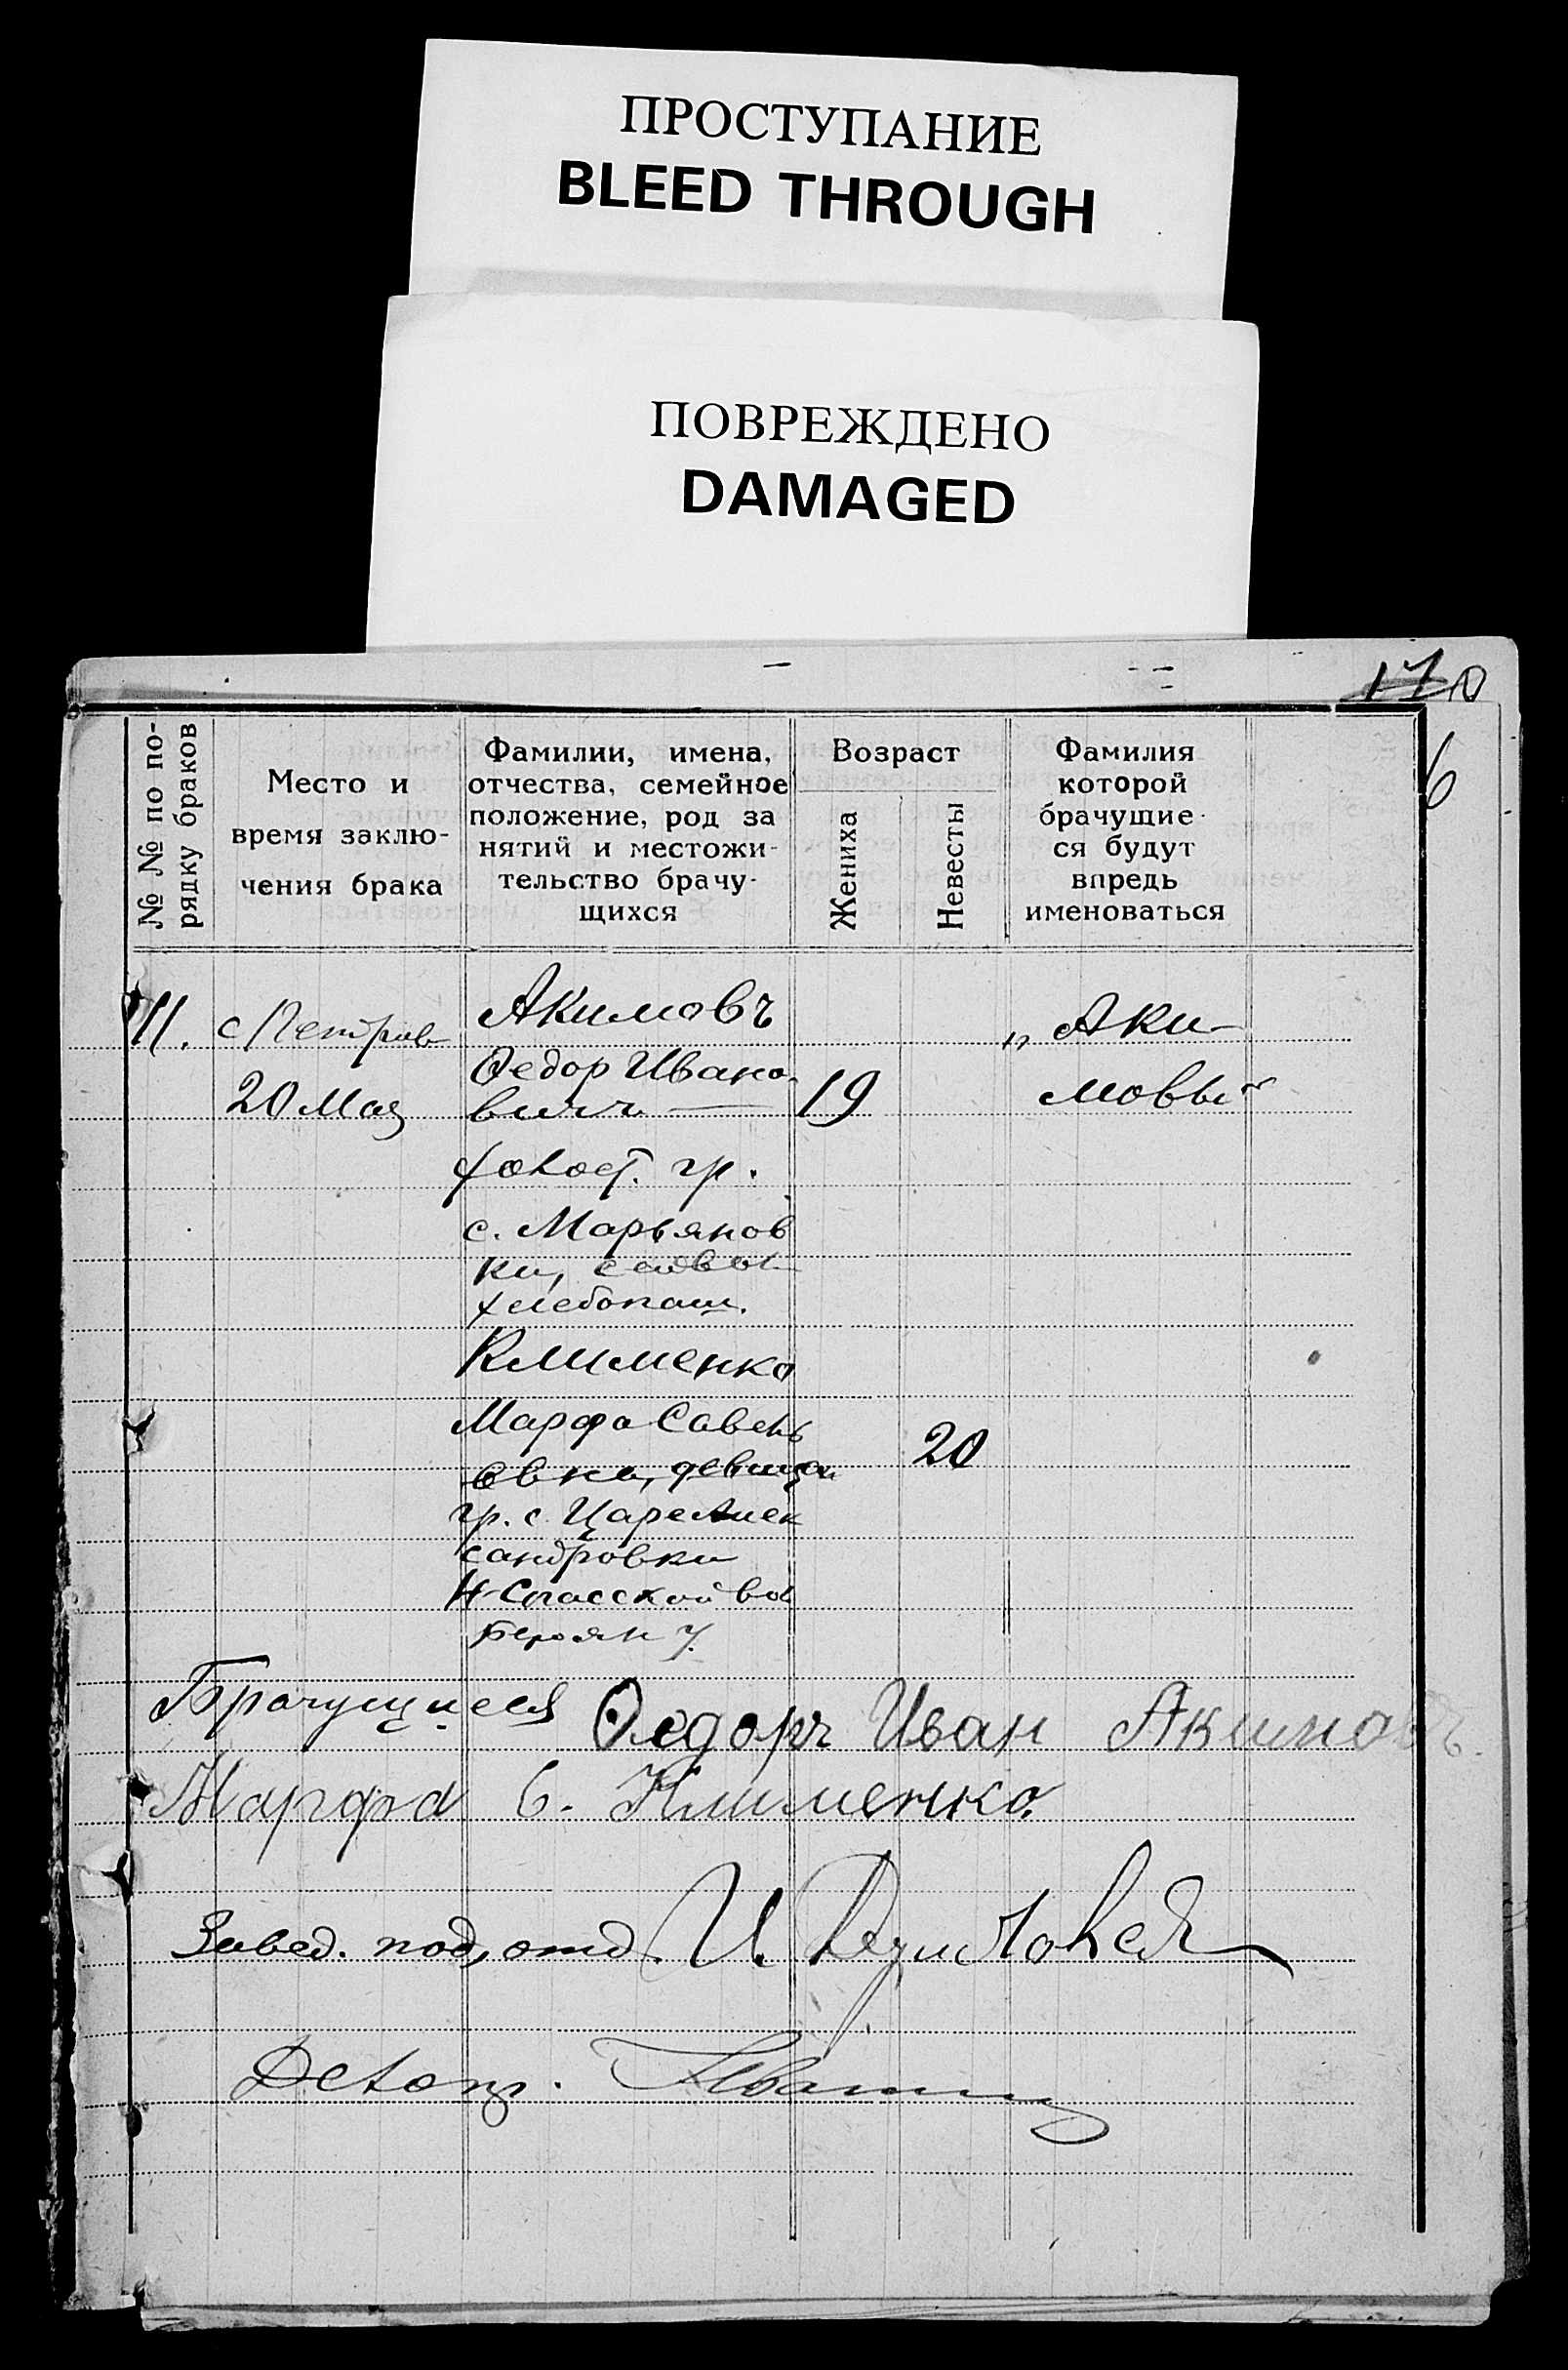 ПРОСТУПАНИЕ
BLEED THROUGH
ПОВРЕЖДЕНО
DAMAGED
6
№ № по по-
рядку браков
Место и
время заклю-
чения брака
Фамилии, имена,
отчества, семейное
положение, род за
нятий и местожи-
тельство брачу-
щихся
Возраст
Жениха
Невесты
Фамилия
которой
брачущие-
ся будут
впредь
именоваться
11. с Петров
20 Мая
Акимовъ
Ѳедор Ивано
вичъ
19
„ Аки-
мовы"
холост. гр.
с. Марьянов
ки,
хлебопаш.
Клименко
Марфа Савель
евна, девица
20
гр. с. Цареалек
сандровки
Н-Спасской вол
Бердян у.
Брачущиеся Ѳедоръ Иван Акимовъ.
Марфа С. Клименко.
Завед. под, отд. И.
Делопр.